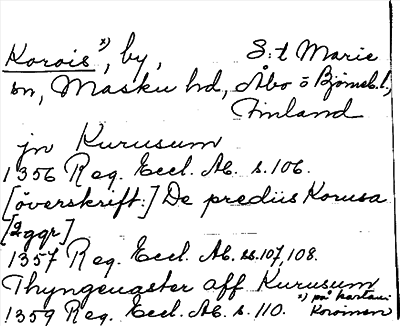 Korois x), by, S:t Marie
sn, Masku hd, Åbo o Björneb. l.,
Finland
jn Kurusum
1356 Reg. Eccl. Ab. s. 106.
[överskrift:] De prediis Korusa
[2ggr]
1357 Reg. Eccl. Ab. ss. 107, 108.
Thyngengster aff Kurusum
1359 Reg. Eccl. Ab. s. 110.
x) på kartan: Koroinen